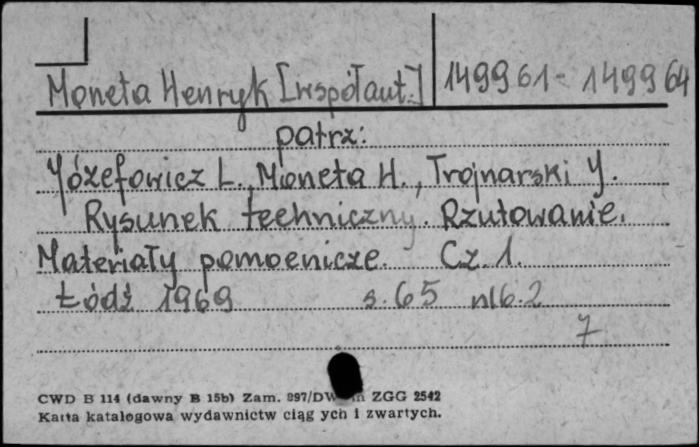 Moneta Henryk [współaut.] 149961-149964
patrz:
Józefowicz L., Moneta H., Trojnarski J.
Rysunek techniczny. Rzutowanie.
Materiały pomocnicze. Cz. 1.
Łódź 1969 s. 65 nlb. 2
7
CWD B 114 (dawny B 15b) Zam. 897/DW ZGG 2542
Karta katalogowa wydawnictw ciąg ych i zwartych.